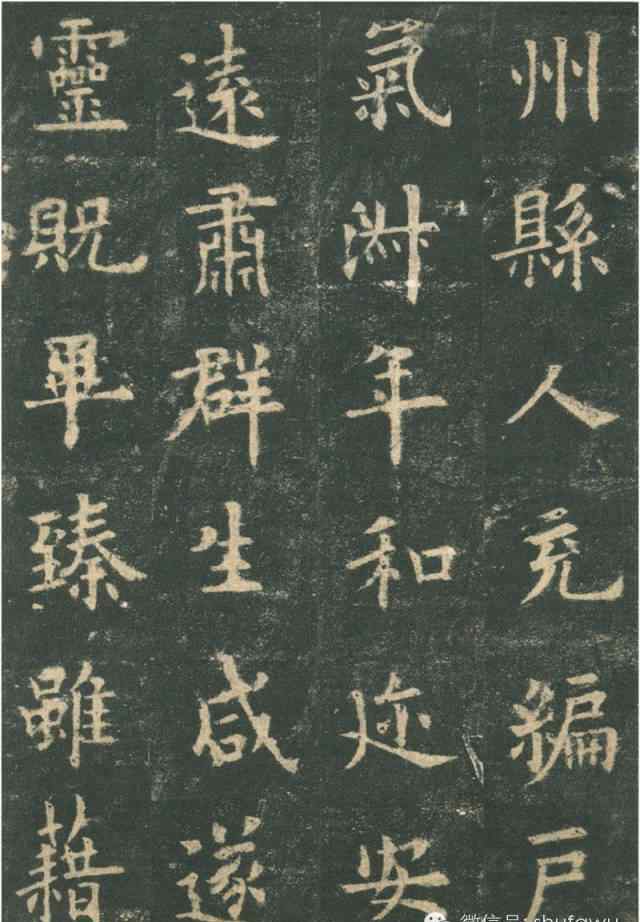 州縣人充編戶
氣淑年和迩安
遠肅群生咸遂
靈貺畢臻雖藉
微信号: shufawu